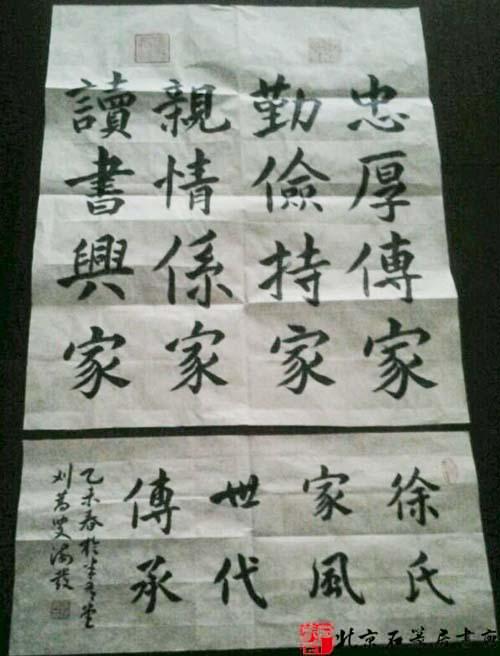 忠厚傳家
勤儉持家
親情係家
讀書興家
徐氏
家風
世代
傳承
乙未春於
北京石